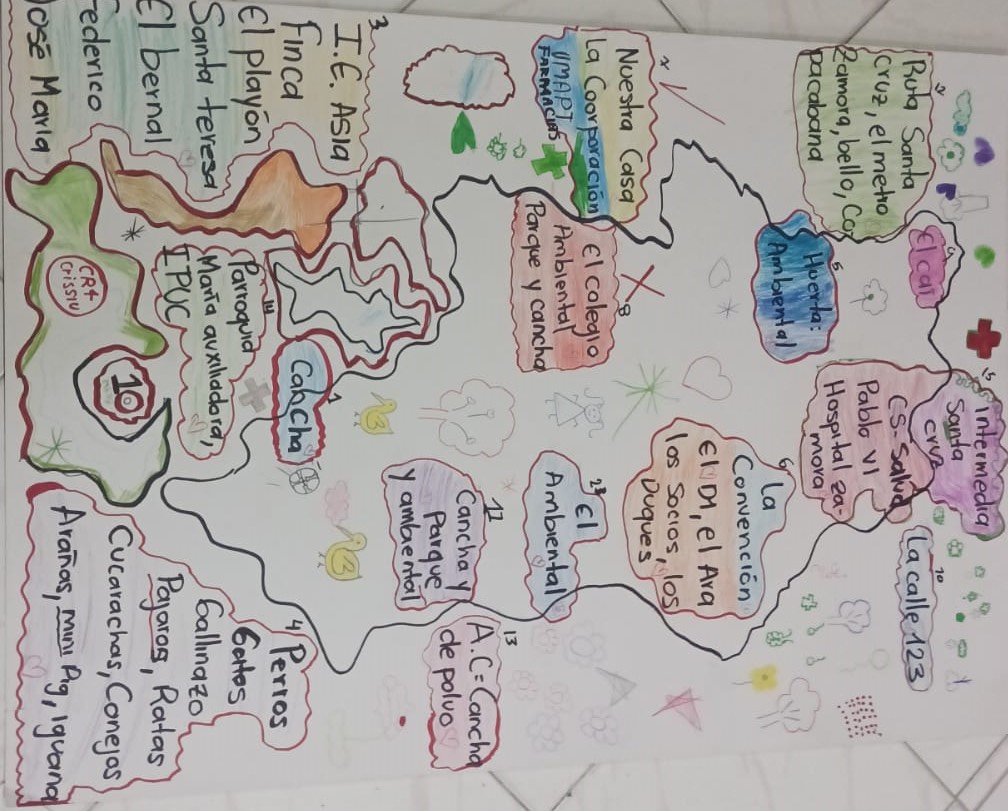 2
Ruta Santa
Cruz, el metro
Zamora, bello, Co
pacabana
9
El cai
15
Intermedia
Santa
cruz
CS. Salud
Pablo VI
Hospital Za-
mora
10
La calle 123
5
Huerta:
Ambiental
Nuestra Casa
La Coorporación
UMAPI
FARMACIAS
8
El colegio
Ambiental
Parque y cancha
6
La
Convención
El D1, el Ara
los Socios, los
Duques
El
Ambiental
12
Cancha y
Parque
y ambiental
13
A.C = Cancha
de polvo
1
Cancha
14
Parroquia
María auxiliadora,
IPUC
3
I.E. Asia
finca
El playón
Santa teresa
El bernal
Federico
José María
CR4
Crissiu
10
4
Perros
Gatos
Gallinazo
Pajaros, Ratas
Cucarachas, Conejos
Arañas, mini Pig, Iguana